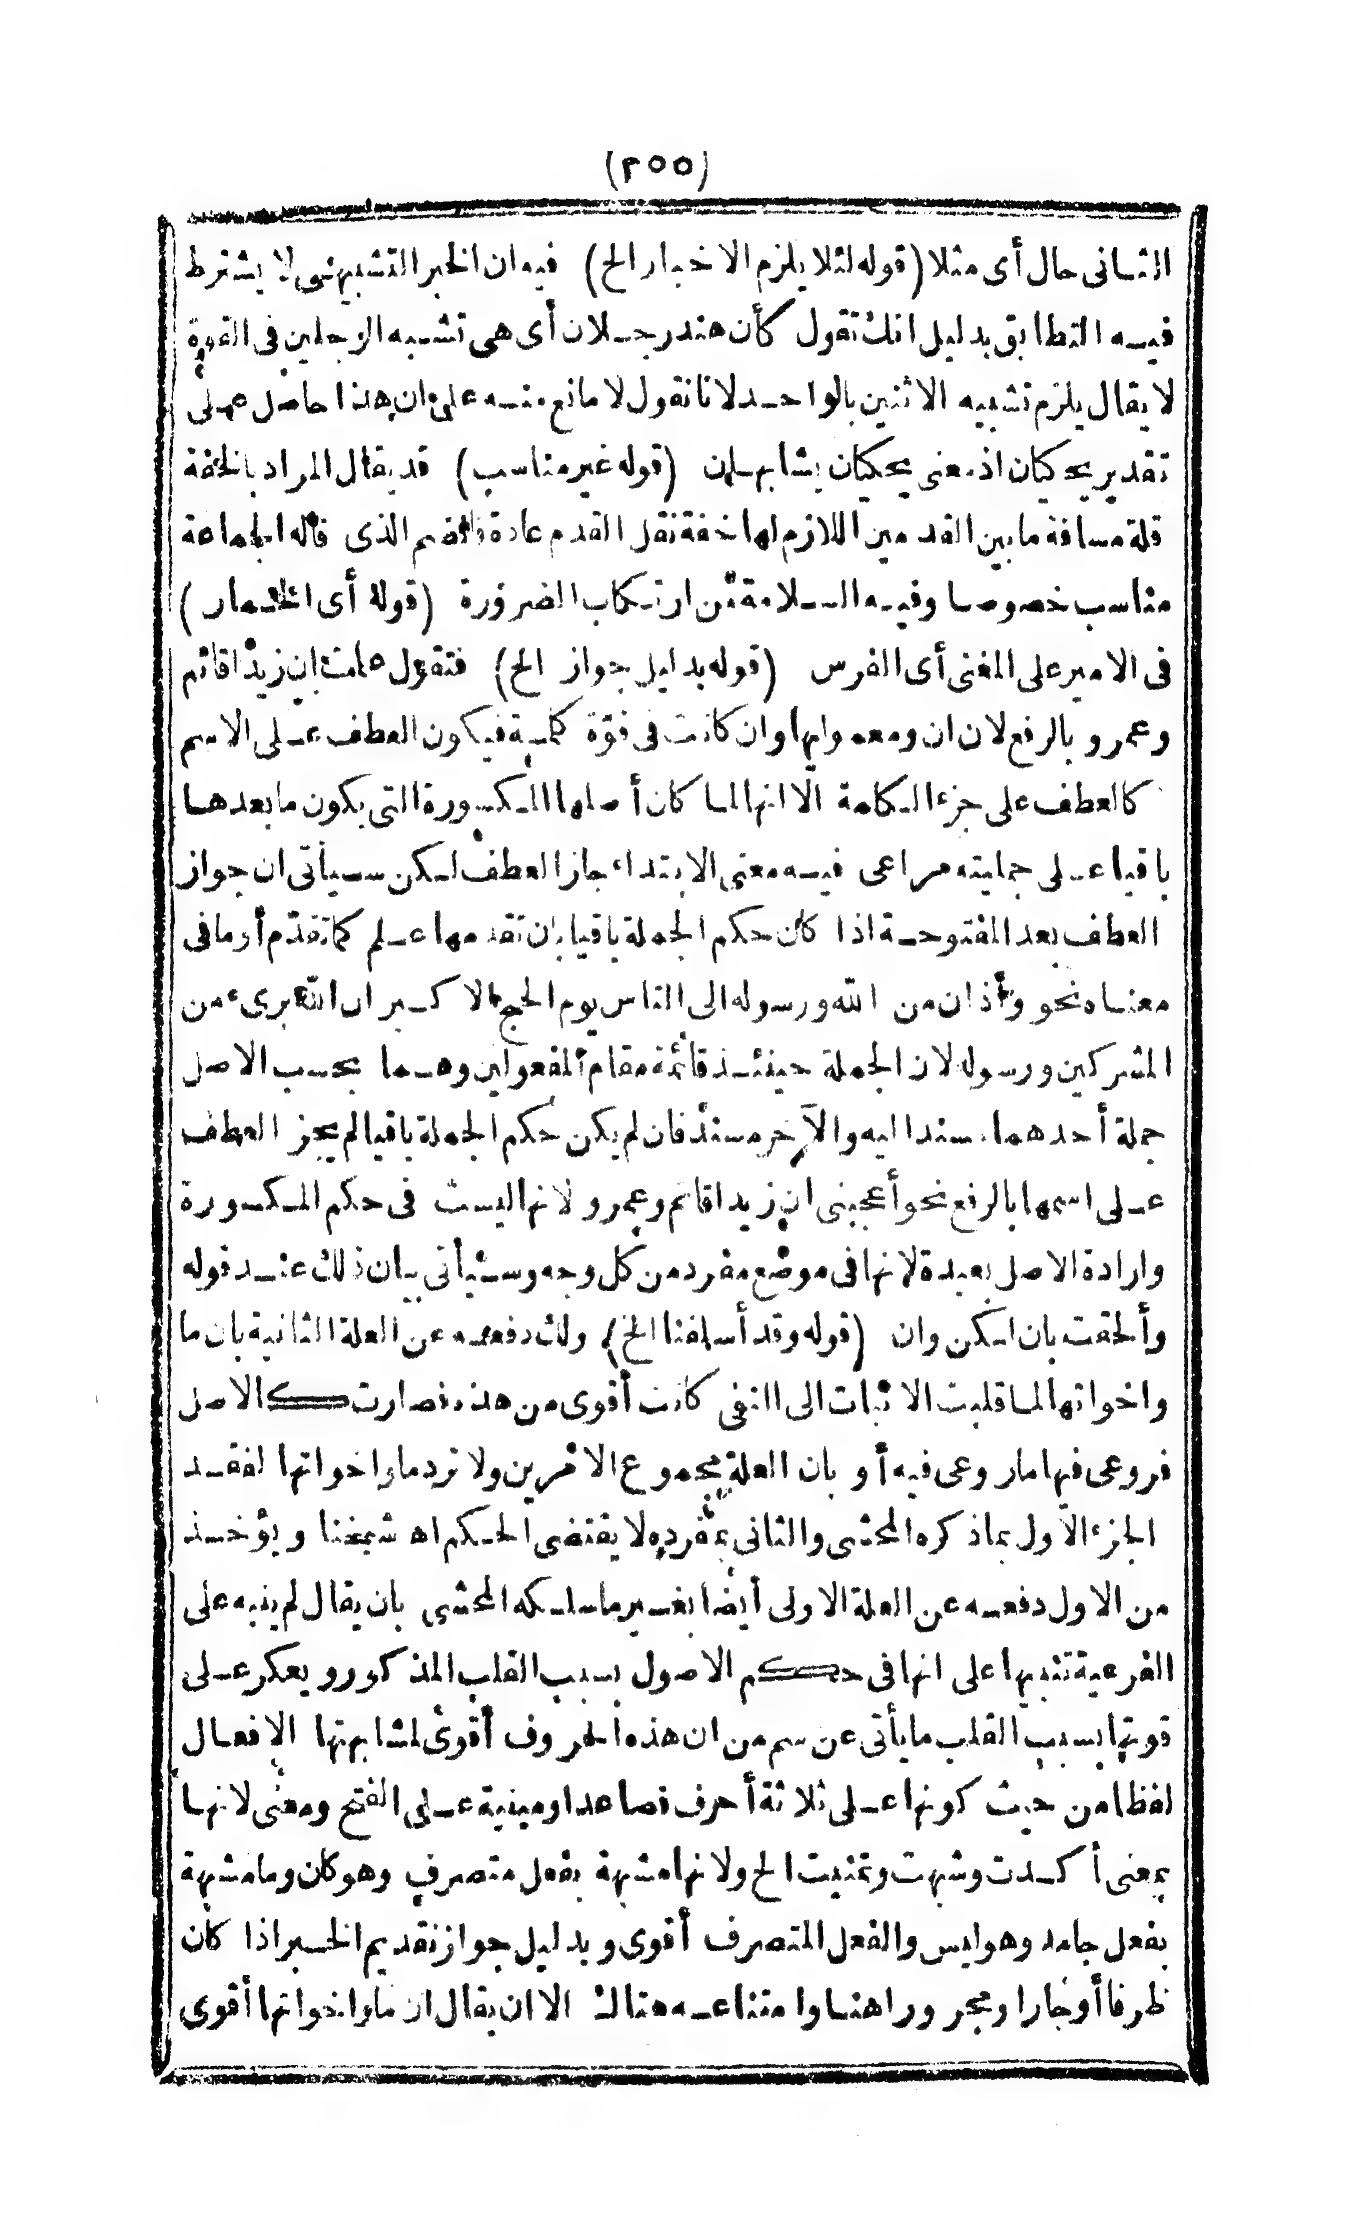 (٢٥٥)
الثانى حال أى مثلا (قوله لئلا يلزم الاخبار الخ) فيه ان الخبر التشبيهى لا يشترط
فيه التطابق بدليل انك تقول كأن هند رجلان أى هى تشبه الرجلين فى القوة
لا يقال يلزم تشبيه الاثنين بالواحد لانا نقول لا مانع منه على ان هذا حاصل على
تقدير يحكيان اذ معنى يحكيان يشابهان (قوله غير مناسب) قد يقال المراد بالخفة
قلة مسافة ما بين القدمين اللازم لها خفة نقل القدم عادة فالضم الذى قاله الجماعة
مناسب خصوصا وفيه السلامة من ارتكاب الضرورة (قوله أى الخمار)
فى الامير على المغنى أى الفرس (قوله بدليل جواز الخ) فتقول علمت ان زيدا قائم
وعمرو بالرفع لان ان ومعموليها وان كانت فى قوّة كلمة فيكون العطف على الاسم
كالعطف على جزء الكلمة الا انها لما كان أصلها المكسورة التى يكون ما بعدها
باقيا على جمليته مراعى فيه معنى الابتداء جاز العطف لكن سيأتى ان جواز
العطف بعد المفتوحة اذا كان حكم الجملة باقيا بان تقدمها علم كما تقدّم أو ما فى
معناه نحو وأذان من الله ورسوله الى الناس يوم الحج الاكبر ان الله برىء من
المشركين ورسوله لان الجملة حينئذ قائمة مقام المفعولين وهما بحسب الاصل
جملة أحدهما مسندا اليه والآخر مسند فان لم يكن حكم الجملة باقيا لم يجز العطف
على اسمها بالرفع نحو أعجبنى ان زيدا قائم وعمرو لانها ليست فى حكم المكسورة
وارادة الاصل بعيدة لانها فى موضع مفرد من كل وجه وسيأتى بيان ذلك عند قوله
وألحقت بان لكن وان (قوله وقد أسلفنا الخ) ولك دفعه عن العلة الثانية بان ما
واخواتها لما قلبت الاثبات الى النفى كانت أقوى من هذه فصارت كالاصل
فروعى فيها ما روعى فيه أو بان العلة مجموع الامرين ولا ترد ما واخواتها لفقد
الجزء الاول بما ذكره المحشى والثانى بمفرده لا يقتضى الحكم اه شيخنا ويؤخذ
من الاول دفعه عن العلة الاولى أيضا بغير ما سلكه المحشى بان يقال لم ينبه على
الفرعية تنبيها على انها فى حكم الاصول بسبب القلب المذكور ويعكر على
قوتها بسبب القلب ما يأتى عن سم من ان هذه الحروف أقوى لمشابهتها الافعال
لفظا من حيث كونها على ثلاثة أحرف فصاعدا ومبنية على الفتح ومعنى لانها
بمعنى أكدت وشبهت وتمنيت الخ ولانها مشبهة بفعل متصرف وهو كان وما مشبهة
بفعل جامد وهو ليس والفعل المتصرف أقوى وبدليل جواز تقديم الخبر اذا كان
ظرفا أو جارا ومجرورا هنا وامتناعه هناك الا ان يقال ان ما واخواتها أقوى